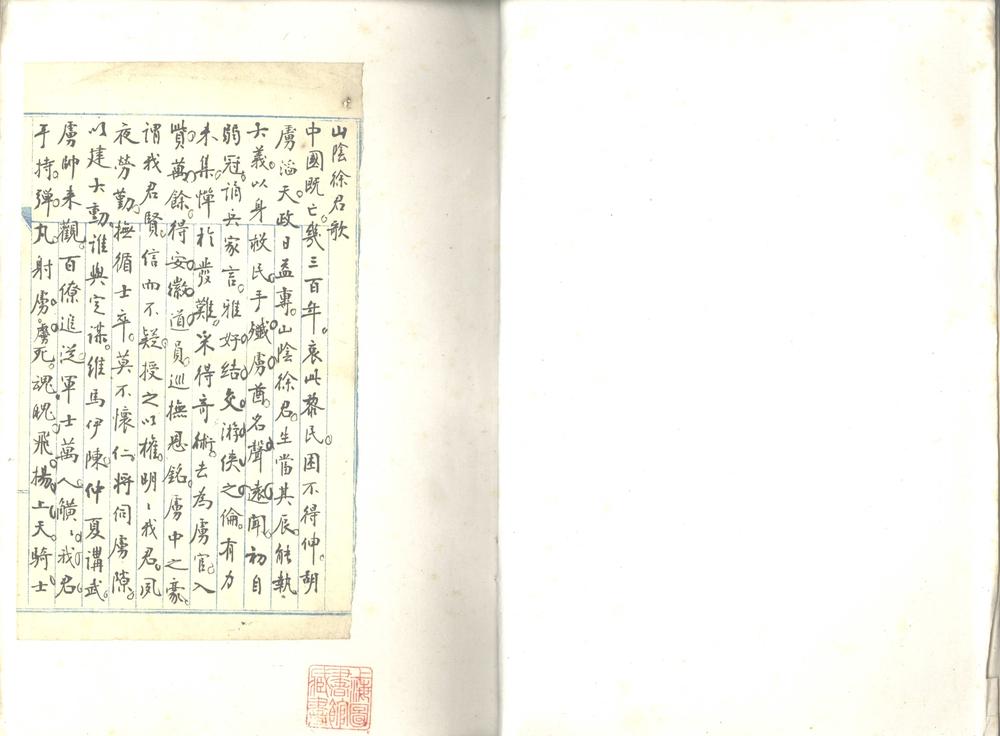 山陰徐君歌
中國既亡。幾三百年。哀此黎民。困不得伸。胡
虜滔天。政日益專。山陰徐君。生當其辰。能執
大義。以身救民。手殲虜酋。名聲遠聞。初自
弱冠。誦兵家言。雅好結交。游俠之倫。有力
未集。憚於發難。采得奇術。去為虜官。入
貲萬餘。得安徽道員。巡撫恩銘。虜中之豪。
謂我君賢。信而不疑。授之以權。明〻我君。夙
夜勞勤。撫循士卒。莫不懷仁。將伺虜隙。
以建大勳。誰與定謀。維馬伊陳。仲夏講武。
虜帥來觀。百僚追從。軍士萬人。觥〻我君。
手持彈丸。射虜。虜死。魂魄飛揚。上天。騎士
上海圖
書館
藏書